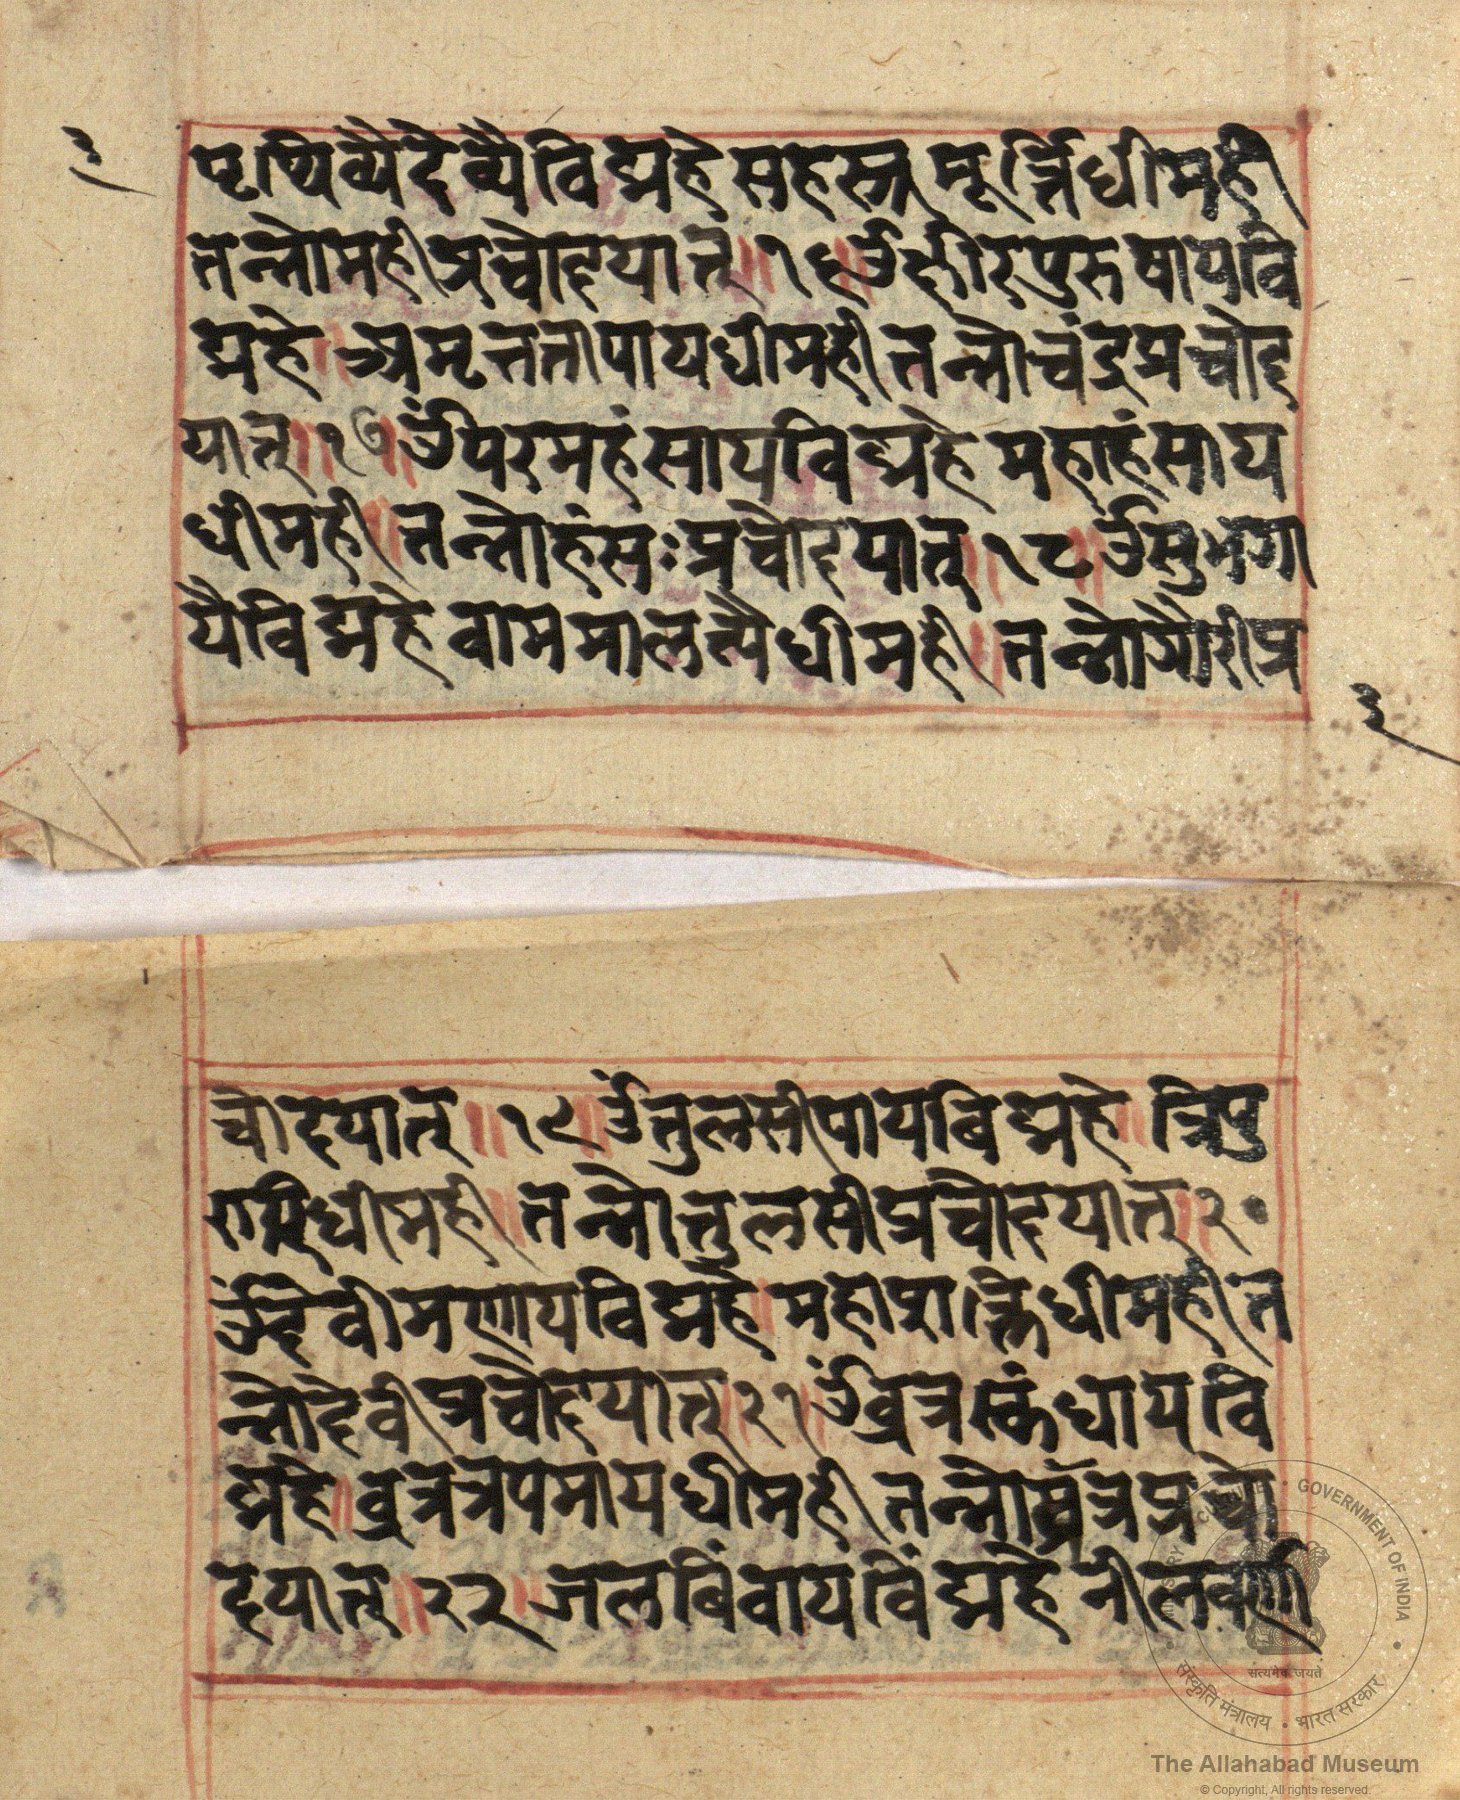 ३
पृथिव्यैदेव्यैविद्महे सहस्र मूर्त्तिधीमही
तन्नोमहीप्रचोदयात् ॥ १६ ॥ ॐ क्षीरपुरुषायवि
द्महे । अमृततीपायधीमही तन्नोचंद्रप्रचोद
यात् ॥ १७ ॥ ॐ परमहंसायविद्महे महाहंसाय
धीमही ॥ तन्नोहंसः प्रचोदयात् ॥ १८ ॥ ॐ सुभगा
यैविद्महे वाममालत्यैधीमही ॥ तन्नोगौरीप्र
३
चोदयात् ॥ १९ ॥ ॐ तुलसीपायविद्महे ॥ त्रिपु
रारिधीमही ॥ तन्नोत्तुलसीप्रचोदयात् ॥ २०
ॐ देवीमणायविद्महे । महाशक्तिधीमही त
न्नोदेवीप्रचोदयात् ॥ २१ ॥ ॐ व्रत्रस्कंधायवि
द्महे ॥ व्रत्रत्रपमायधीमही तन्नोव्रत्रप्रचो
दयात् ॥ २२ ॥ जलबिंवायविंद्महे नीलवर्ण
MINISTRY OF CULTURE • GOVERNMENT OF INDIA
सत्यमेव जयते
संस्कृति मंत्रालय • भारत सरकार
The Allahabad Museum
© Copyright, All rights reserved.